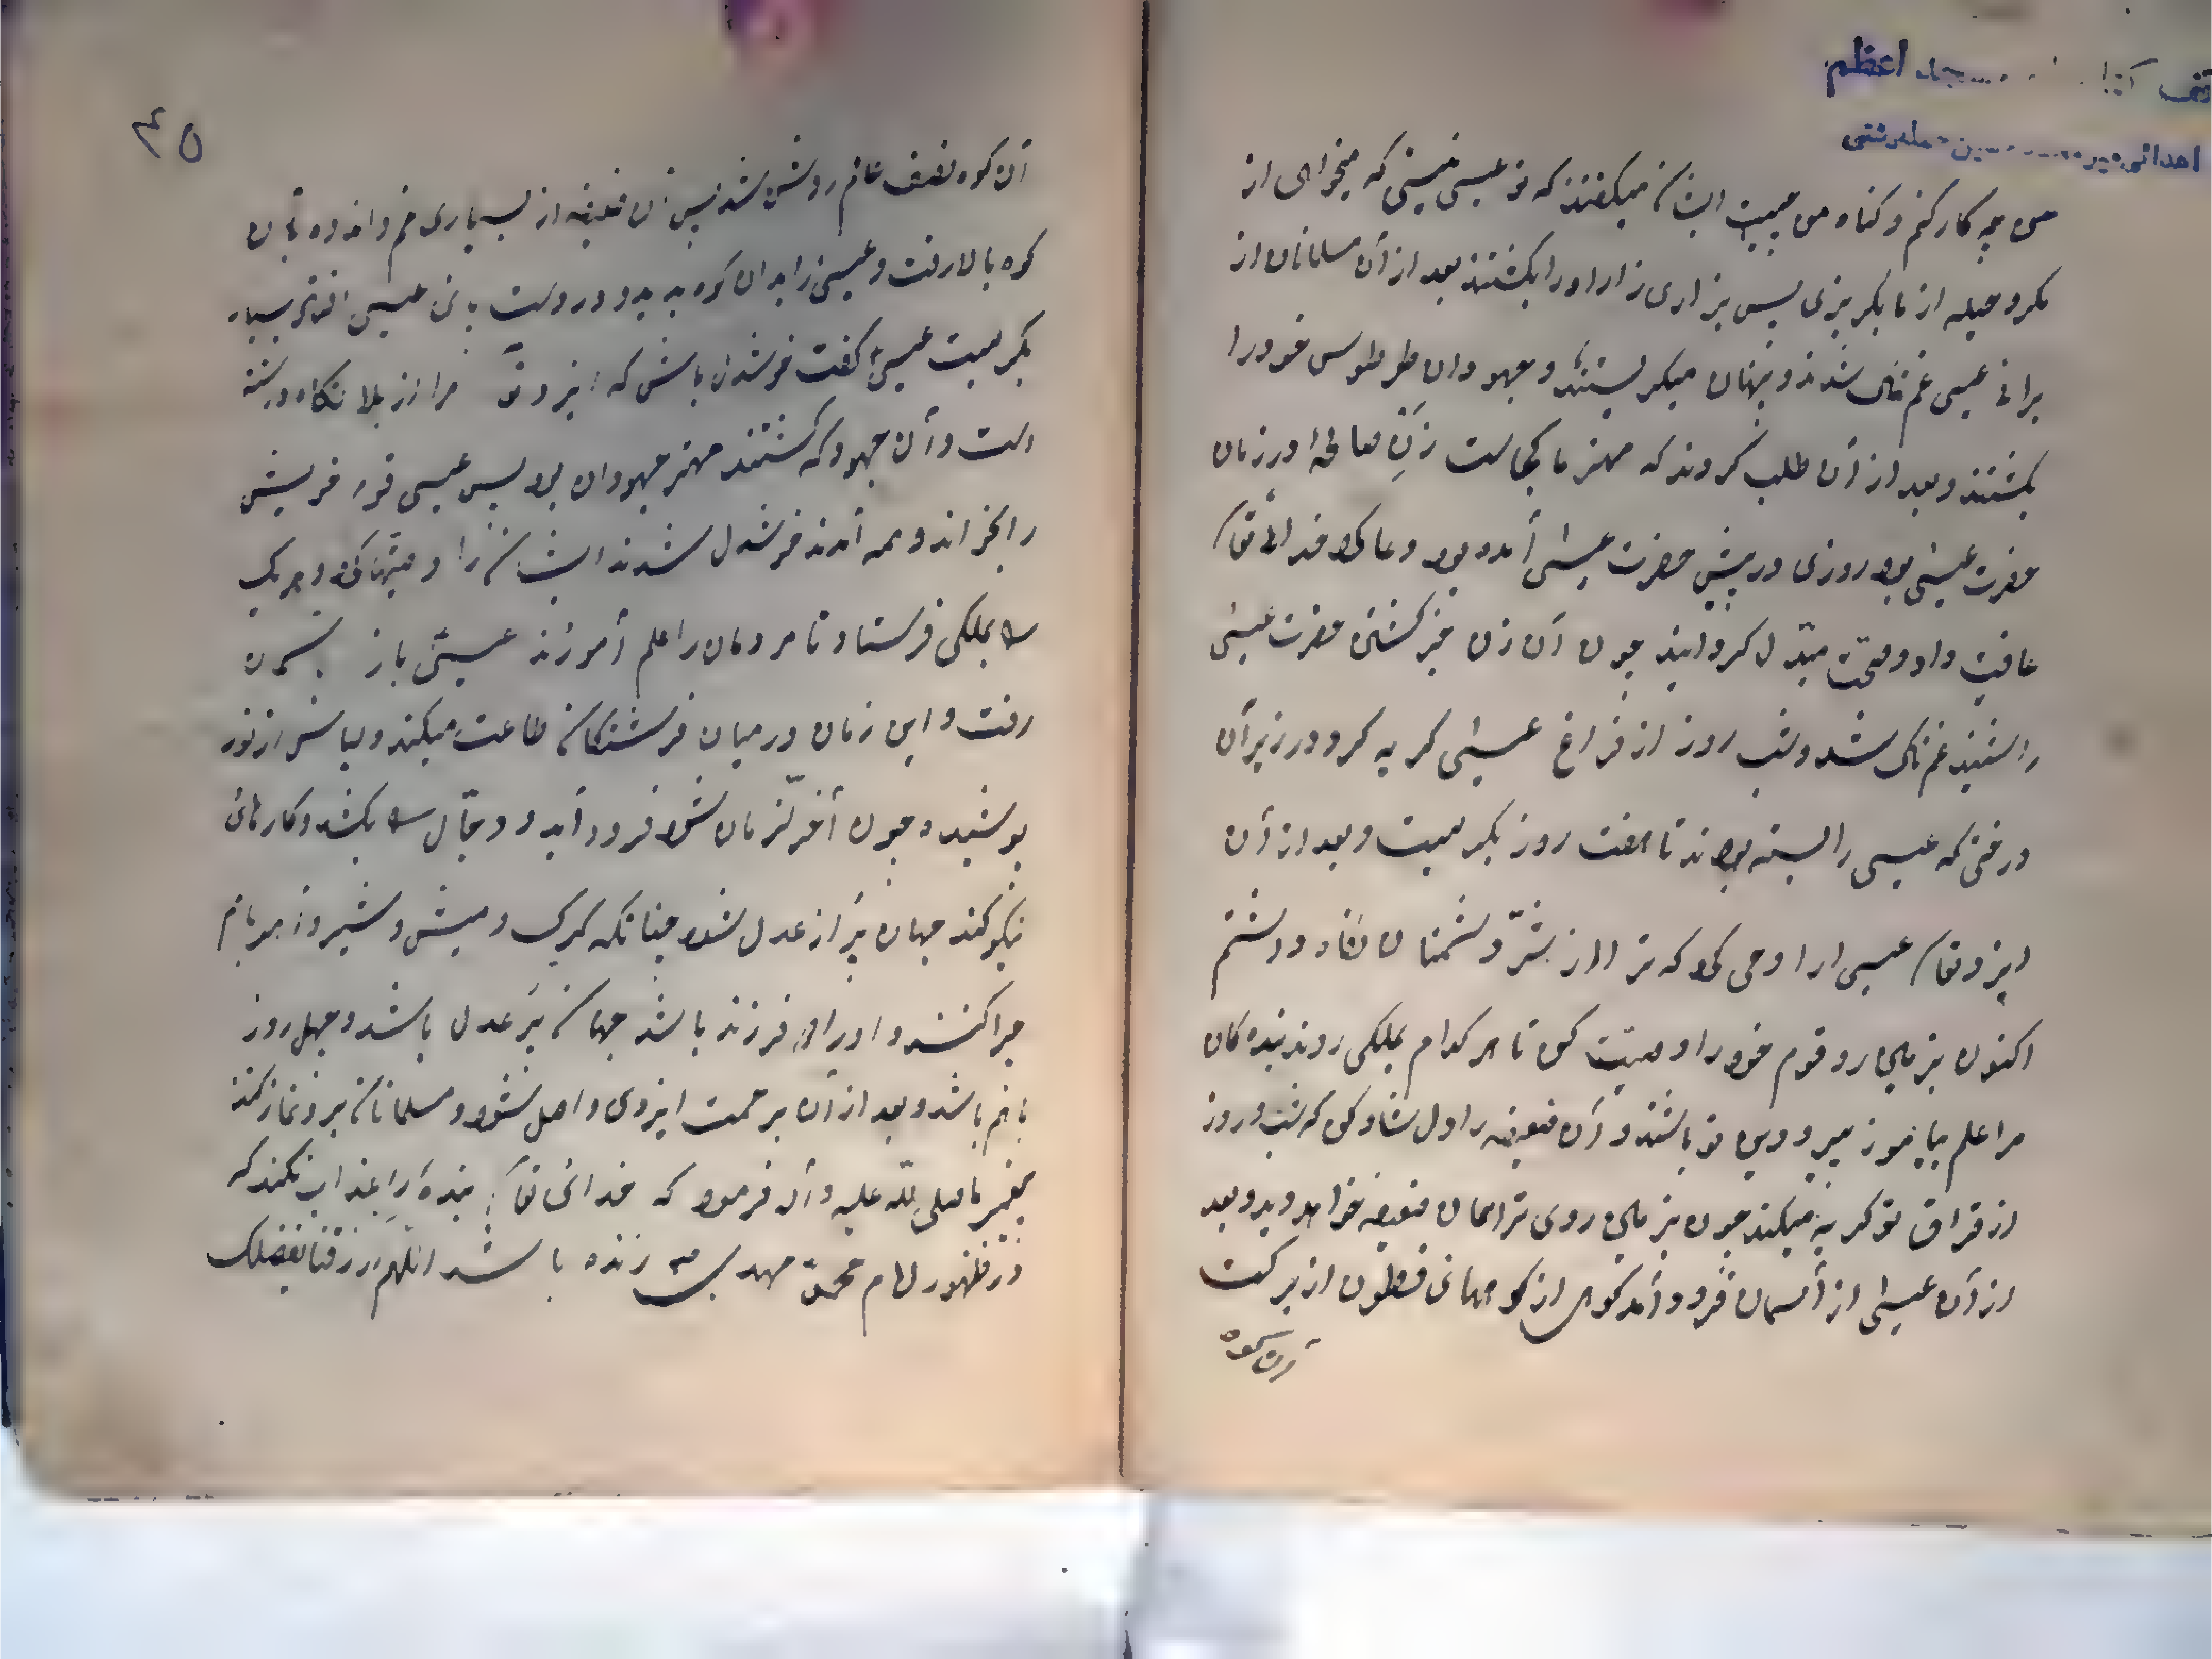 اعظم
اهدائی
من چه کار کنم و گناه من چیست ایشان میگفتند که تو عیسی نیستی که میخواهی از
مکر و حیله از ما بگریزی پس بزاری زار او را بکشتند بعد از آن مسلمانان از
برائے عیسی غمناک شدند و پنهان میگریستند و جهودان طرطوس خود را
بکشتند و بعد از آن طلب کردند که مهتر ما کجاست زن در زمان
حضرت عیسی بود روزی در پیش حضرت عیسی آمده بود دعا کرد خدائے تعا
عافیت داد و مبدل گردانید چون آن زن خبر کشتن حضرت عیسی
را شنید غمناک شد و شب روز از فراغ عیسی گریه کرد در زیر آن
درختی که عیسی را بسته بودند تا هفت روز بگریست و بعد از آن
ایزد تعا عیسی را وحی کرد که ترا از شر دشمنان نگاه داشتم
اکنون بزمین رو قوم خود را وصیت کن تا هر کدام بملکی روند بنده گان
مرا علم بیاموزند بر دین تو باشند و آن ضعیفه را دل شاد کن که شب و روز
از فراق تو گریه میکند چون بزمین روی ترا همان ضعیفه خواهد دید و بعد
از آن عیسی از آسمان فرود آمد کوهی از کوههائے از برکت
آن کوه
٤٥
آن کوه نصف عالم روشن شد پس آن ضعیفه از بسیاری غم و اندوه بآن
کوه بالا رفت و عیسی را بدان کوه بدید و در دست پائے عیسی افتاد بسیار
بگریست عیسی گفت خوشدل باش که ایزد تعا مرا از بلا نگاه داشته
است و آن جهود که کشتند مهتر جهودان بود پس عیسی قوم خویش
را بخواند و همه آمدند خوشدل شدند ایشان را وصیتها کرد و هر یک
را بملکی فرستاد تا مردمان را علم آموزند عیسی باز بآسمان
رفت و این زمان در میان فرشتگان طاعت میکند و لباس از نور
پوشیده چون آخر زمان شود فرود آید و دجال را بکشد و کارهائے
نیکو کند جهان پر از عدل شود چنانکه گرگ و میش و شیر و بز هر باهم
چرا کنند و او را دو فرزند باشد جهان پر عدل باشد و چهل روز
باهم باشد و بعد از آن برحمت ایزدی واصل شود و مسلمانان بر و نماز کنند
پیغمبر ما صلی الله علیه و آله فرمود که خدائے تعا بنده را عذاب نکند که
در ظهور امام محمد مهدی زنده باشد اللهم ارزقنا بفضلک